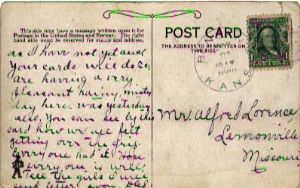 This side may have a message written upon it for
Postage in the United States and Mexico. The right
hand side must be reserved for stamp and address.
POST CARD
THE ADDRESS TO BE WRITTEN ON
THIS SIDE
KANS
as I have not yet and
Your cards will do so
are having a very
pleasant rainy misty
day here was yesterday
also. You can see by this
card how we are felt
getting over the grip
Every one had it Hope
every one is well
Tell the girls I will
send letter
Mr. Alford Lorence
Lemonville
Missouri